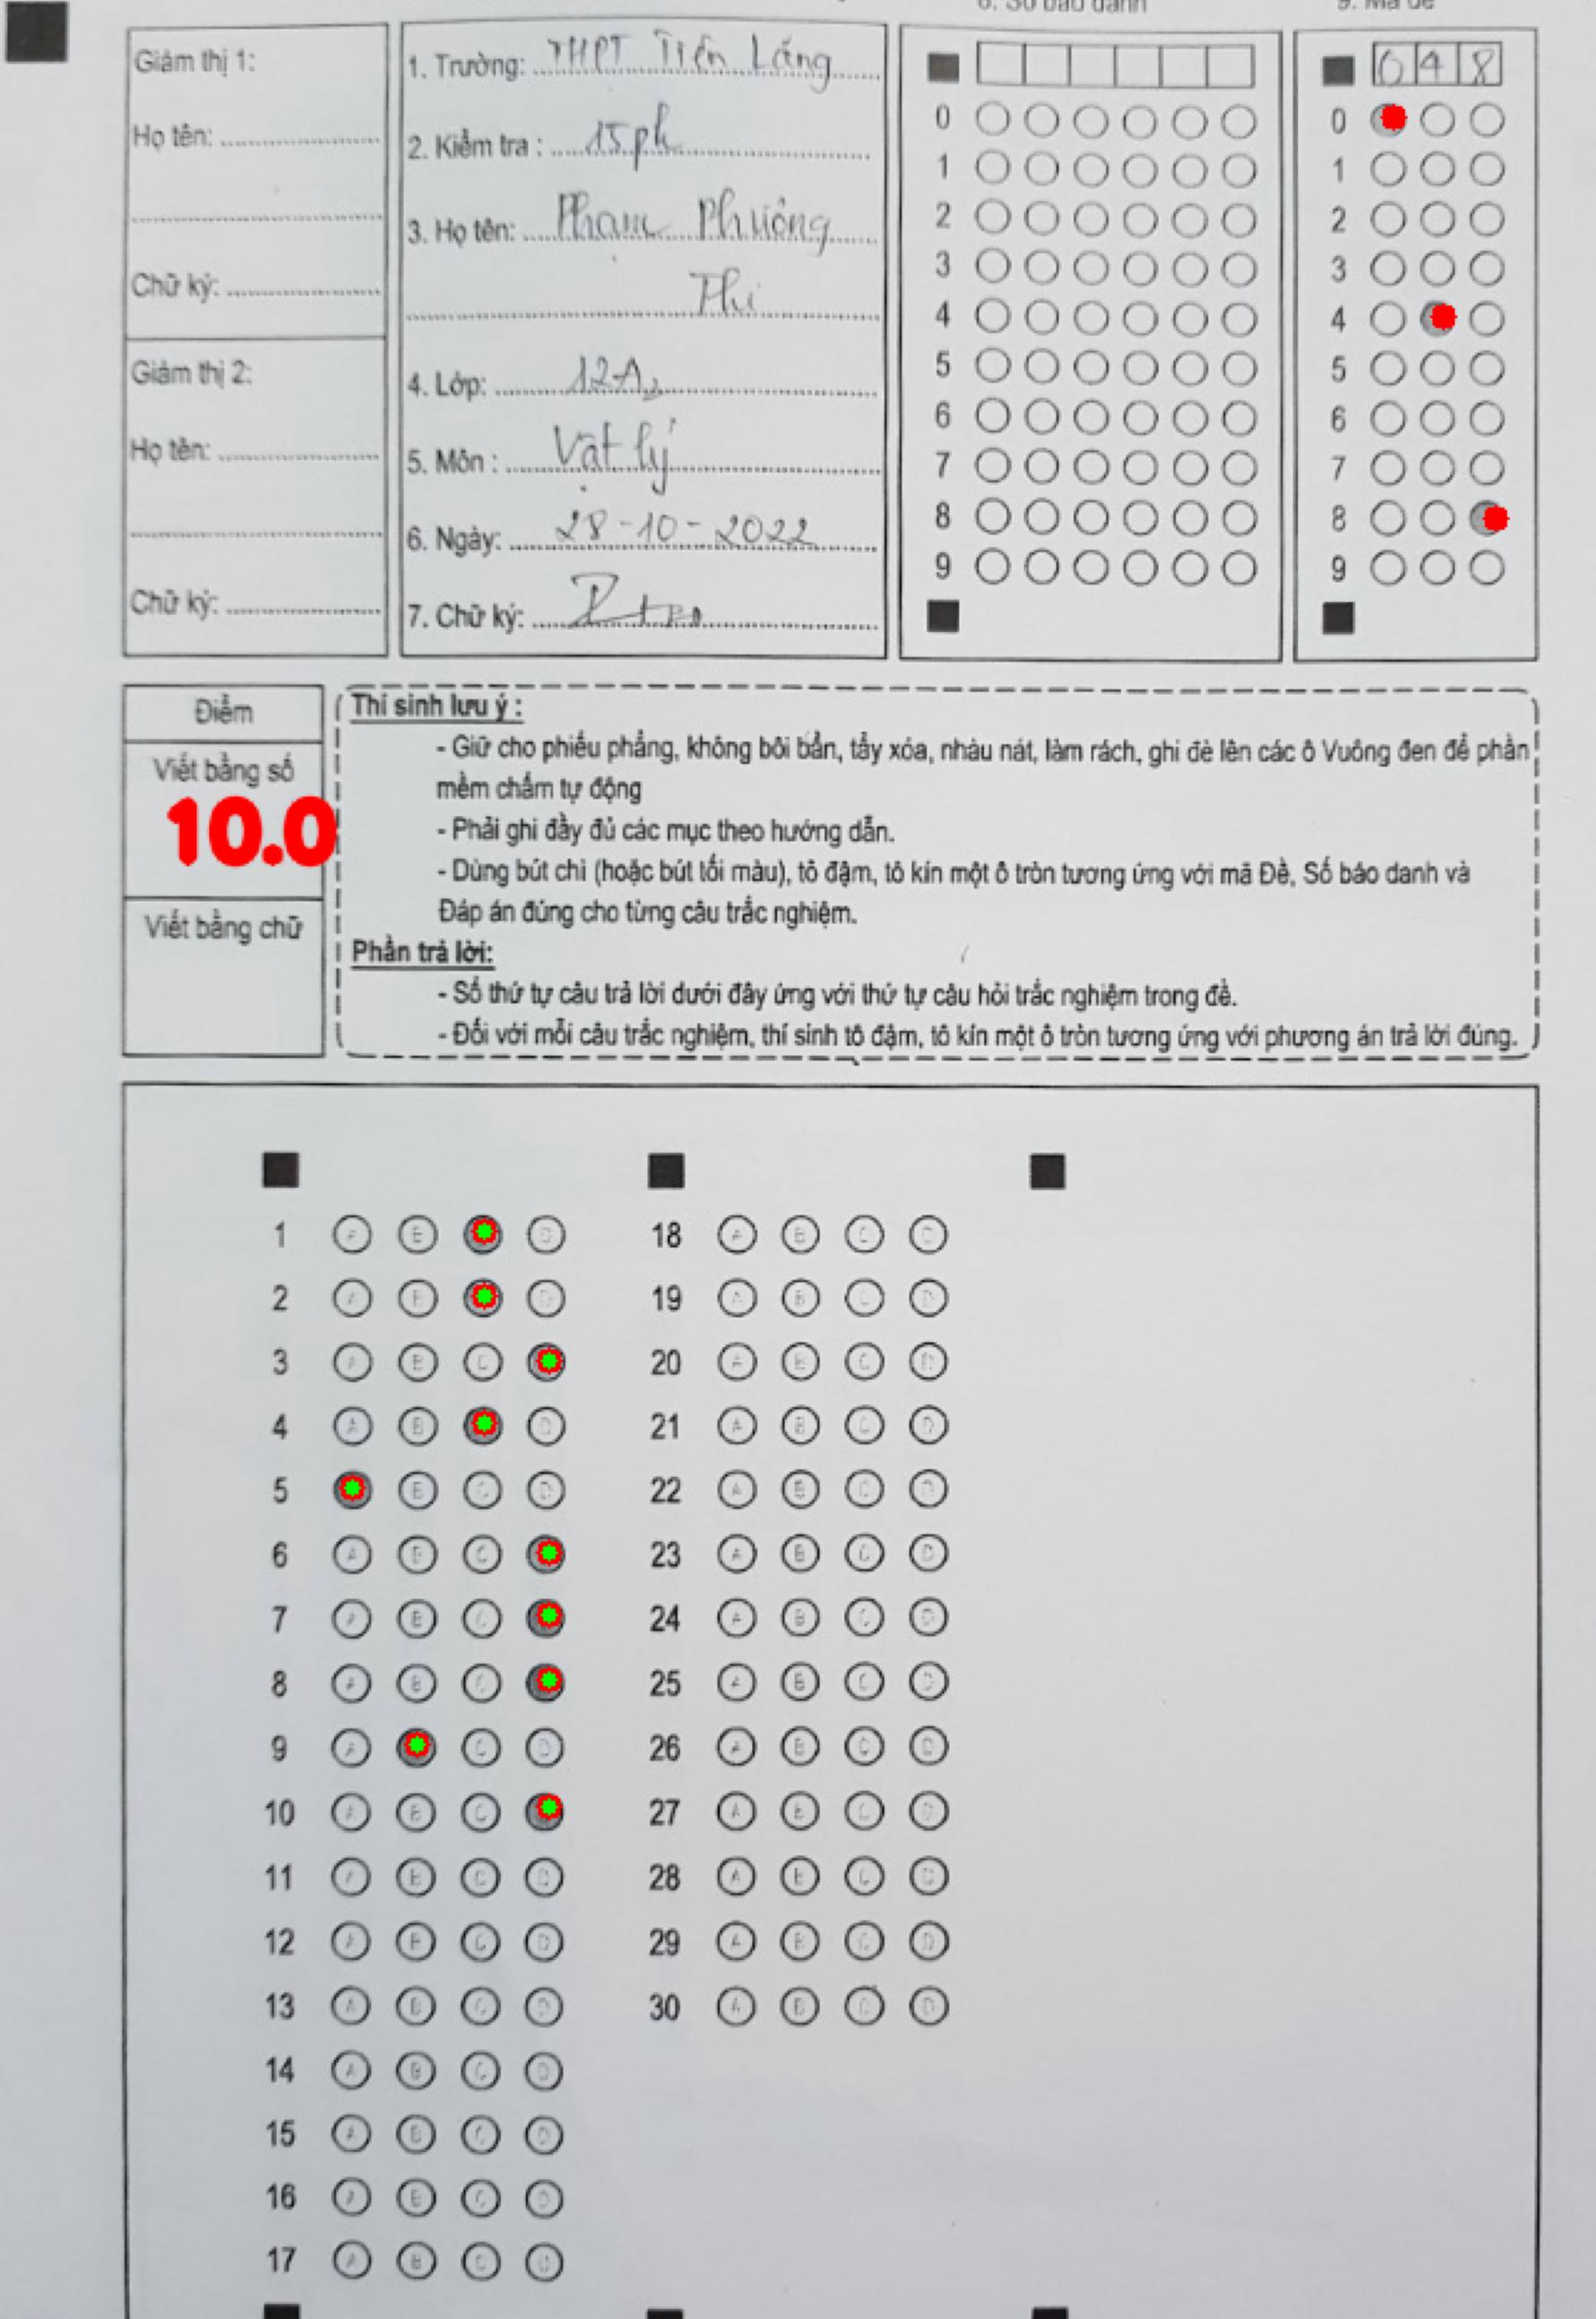 Giám thị 1:
Họ tên:
Chữ ký:
Giám thị 2:
Họ tên:
Chữ ký:
1. Trường: THPT Tiên Lãng
2. Kiểm tra : 15 ph
3. Họ tên: Phạm Phương
Thi
4. Lớp: 12A2
5. Môn : Vật lý
6. Ngày: 28-10-2022
7. Chữ ký:
8. Số báo danh
0
1
2
3
4
5
6
7
8
9
9. Mã đề
048
0
1
2
3
4
5
6
7
8
9
Điểm
Viết bằng số
10.0
Viết bằng chữ
Thí sinh lưu ý :
- Giữ cho phiếu phẳng, không bôi bẩn, tẩy xóa, nhàu nát, làm rách, ghi đè lên các ô Vuông đen để phần
mềm chấm tự động
- Phải ghi đầy đủ các mục theo hướng dẫn.
- Dùng bút chì (hoặc bút tối màu), tô đậm, tô kín một ô tròn tương ứng với mã Đề, Số báo danh và
Đáp án đúng cho từng câu trắc nghiệm.
Phần trả lời:
- Số thứ tự câu trả lời dưới đây ứng với thứ tự câu hỏi trắc nghiệm trong đề.
- Đối với mỗi câu trắc nghiệm, thí sinh tô đậm, tô kín một ô tròn tương ứng với phương án trả lời đúng.
1 A B D
2 A B D
3 A B C
4 A B D
5 B C D
6 A B C
7 A B C
8 A B C
9 A C D
10 A B C
11 A B C D
12 A B C D
13 A B C D
14 A B C D
15 A B C D
16 A B C D
17 A B C D
18 A B C D
19 A B C D
20 A B C D
21 A B C D
22 A B C D
23 A B C D
24 A B C D
25 A B C D
26 A B C D
27 A B C D
28 A B C D
29 A B C D
30 A B C D